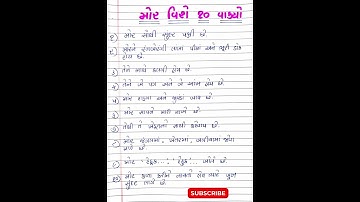 મોર વિશે ૧૦ વાક્યો
૧) મોર સૌથી સુંદર પક્ષી છે.
૨) મોરને રંગબેરંગી લાંબા પીંછા અને ભૂરી ડોક
હોય છે.
૩) તેને માથે કલગી હોય છે.
૪) તેને બે પગ અને બે આંખ હોય છે.
૫) મોર દાણા અને જીવડાં ખાય છે.
૬) મોર સાપને મારી નાખે છે.
૭) તેથી તે ખેડૂતનો સાથી કહેવાય છે.
૮) મોર જંગલમાં, ખેતરમાં, બગીચામાં જોવા
મળે છે.
૯) મોર ' ટેહુક...! ' ટેહુક!... બોલે છે.
૧૦) મોર કળા કરીને નાચતો હોય ત્યારે ખૂબ
સુંદર લાગે છે.
SUBSCRIBE